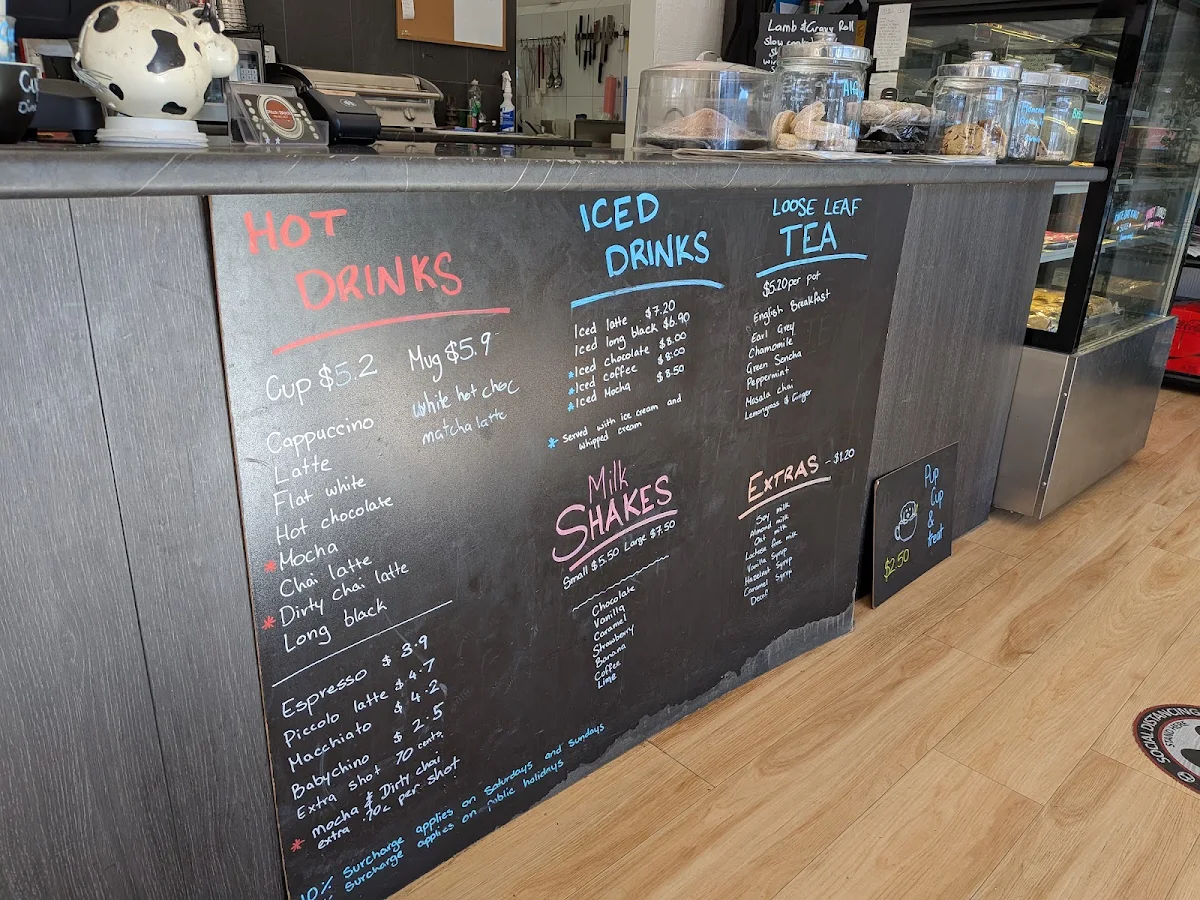 Lamb & Gravy Roll
HOT
DRINKS
Cup $5.2
Mug $5.9
white hot choc
matcha latte
Cappuccino
Latte
Flat white
Hot chocolate
* Mocha
Chai latte
* Dirty chai latte
Long black
Espresso $3.9
Piccolo latte $4.7
Macchiato $4.2
Babychino $2.5
Extra shot 70 cents.
* mocha & Dirty chai
extra .70c per shot
10% surcharge applies on Saturdays and Sundays
surcharge applies on public holidays
ICED
DRINKS
Iced latte $7.20
Iced long black $6.90
* Iced chocolate $8.00
* Iced coffee $8.00
* Iced Mocha $8.50
* Served with ice cream and
whipped cream
Milk
SHAKES
Small $5.50 Large $7.50
Chocolate
Vanilla
Caramel
Strawberry
Banana
Coffee
Lime
LOOSE LEAF
TEA
$5.20 per pot
English Breakfast
Earl Grey
Chamomile
Green Sencha
Peppermint
Masala chai
Lemongrass & Ginger
EXTRAS - $1.20
Soy milk
Almond milk
Oat milk
Lactose free milk
Vanilla syrup
Hazelnut syrup
Caramel syrup
Decaf
Pup
Cup
&
treat
$2.50
SOCIAL DISTANCING
STAND HERE